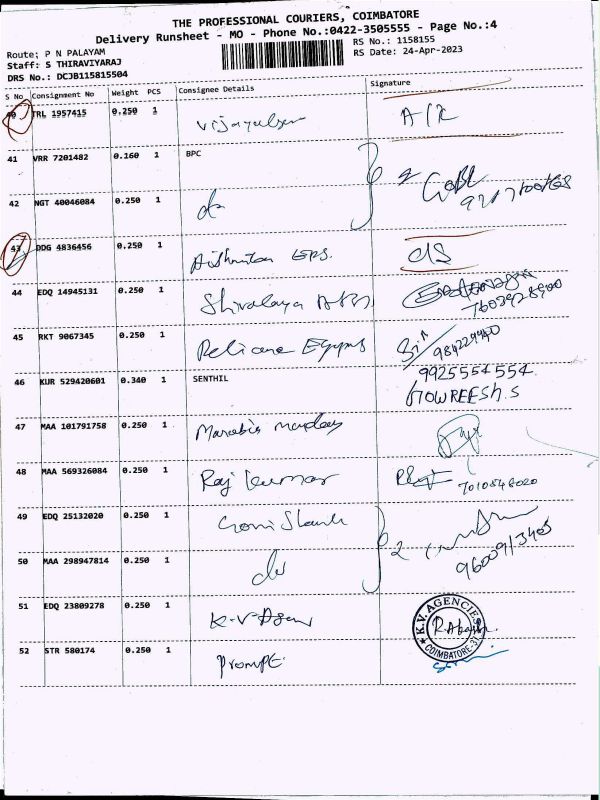 THE PROFESSIONAL COURIERS, COIMBATORE
Delivery Runsheet - MO - Phone No.:0422-3505555 - Page No.:4
Route: P N PALAYAM
Staff: S THIRAVIYARAJ
DRS No.: DCJB115815504
RS No.: 1158155
RS Date: 24-Apr-2023
S No Consignment No Weight PCS Consignee Details Signature
40 TRL 1957415 0.250 1
41 VRR 7201482 0.160 1 BPC
42 NGT 40046084 0.250 1
43 DDG 4836456 0.250 1
44 EDQ 14945131 0.250 1 Shivalaya
45 RKT 9067345 0.250 1 Reliance
46 KUR 529420601 0.340 1 SENTHIL 9925554554
GOWREESH.S
47 MAA 101791758 0.250 1
48 MAA 569326084 0.250 1 Raj Kumar 7010846020
49 EDQ 25132020 0.250 1
50 MAA 298947814 0.250 1 9600913403
51 EDQ 23809278 0.250 1 K.V. K.V. AGENCIES
COIMBATORE-37
52 STR 580174 0.250 1 Prompt